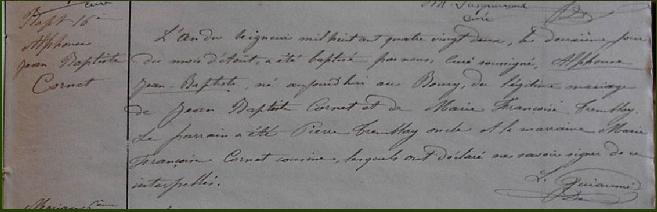 curé
Bapt. 16e
Alphonse
Jean Baptiste
Cornet
L'An du Seigneur mil huit cent quatre vingt deux, le douzième jour
du mois d'Août, a été baptisé par nous, curé soussigné, Alphonse
Jean-Baptiste, né aujourd'hui au Bourg, du légitime mariage
de Jean Baptiste Cornet et de Marie Françoise Tremblay.
Le parrain a été Pierre Tremblay oncle et la marraine Marie
Françoise Cornet cousine, lesquels ont déclaré ne savoir signer de ce
interpellés.